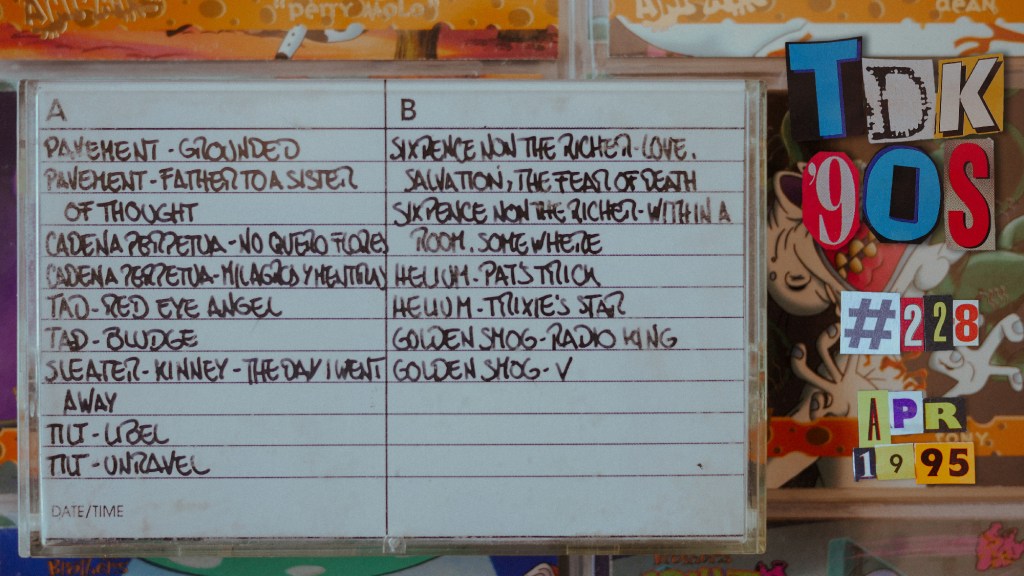 "Perry Mole"
DEAN
A
B
PAVEMENT - GROUNDED
PAVEMENT - FATHER TO A SISTER
OF THOUGHT
CADENA PERPETUA - NO QUIERO FLORES
CADENA PERPETUA - MILAGROS Y MENTIRAS
TAD - RED EYE ANGEL
TAD - BLUDGE
SLEATER - KINNEY - THE DAY I WENT
AWAY
TILT - LIBEL
TILT - UNRAVEL
DATE/TIME
SIXPENCE NON THE RICHER - LOVE,
SALVATION, THE FEAR OF DEATH
SIXPENCE NON THE RICHER - WITHIN A
ROOM. SOMEWHERE
HELIUM - PAT'S TRICK
HELIUM - TRIXIE'S STAR
GOLDEN SMOG - RADIO KING
GOLDEN SMOG - V
TDK
'90S
#228
APR
1995
TONY